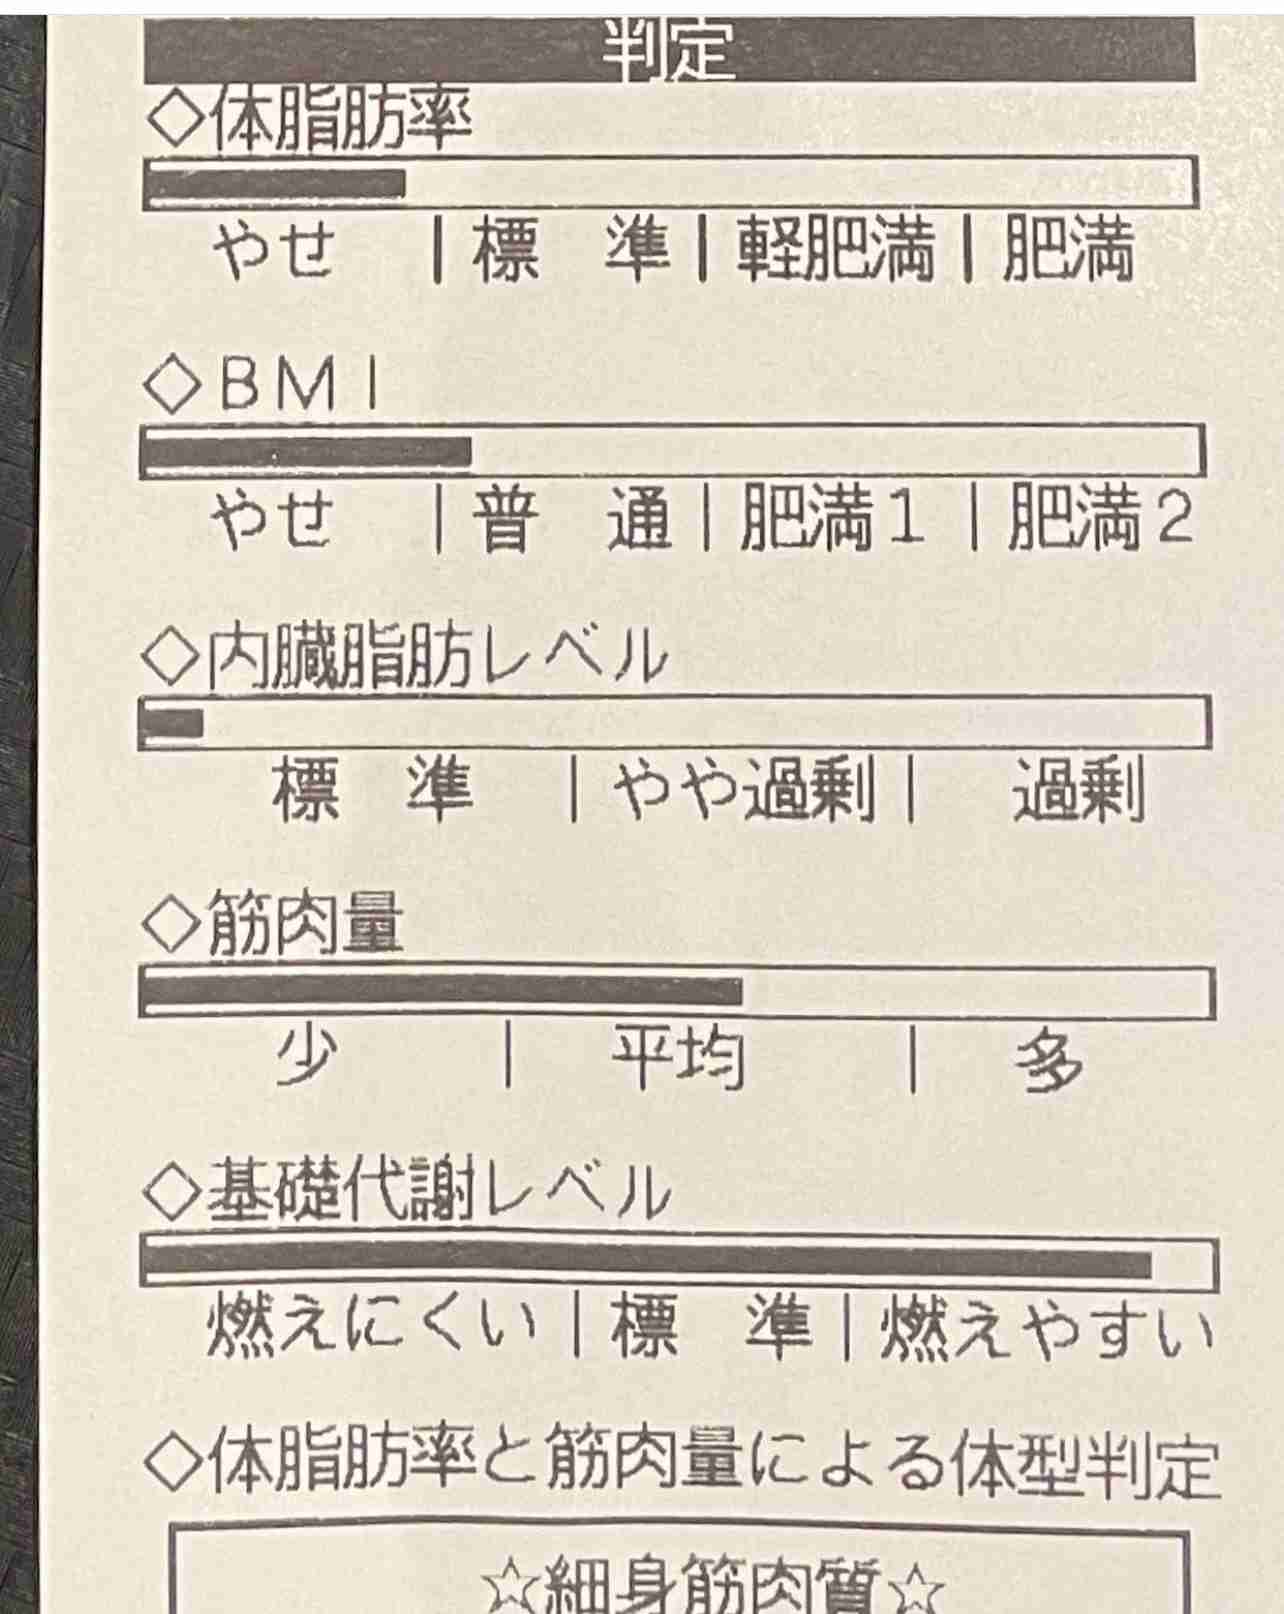 判定
◇体脂肪率
やせ | 標 準 | 軽肥満 | 肥満
◇BMI
やせ | 普 通 | 肥満1 | 肥満2
◇内臓脂肪レベル
標 準 | やや過剰 | 過剰
◇筋肉量
少 | 平均 | 多
◇基礎代謝レベル
燃えにくい | 標 準 | 燃えやすい
◇体脂肪率と筋肉量による体型判定
☆細身筋肉質☆